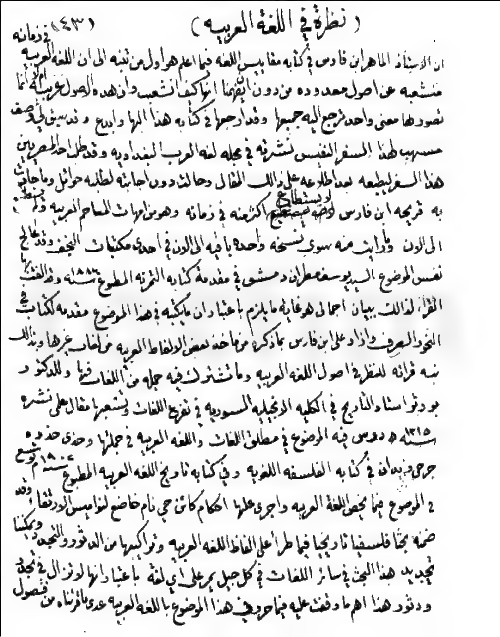 (نظرة في اللغة العربيه) (٤٣١)
ان الاستاذ الماهر ابن فارس في كتابه مقاييس اللغه فيما اعلم هو اول من تنبه الى ان اللغه العربيه في زمانه
متشعبه عن اصول معدوده من دون ان يتهيأ انها كيف انشعب وان هذه الاصول
تصور لها معنى واحد ترجع اليه جميعها وقد اوجعها في كتابه هذا وابدع وقد سبق لي وصف
مسهب لهذا السفر النفيس نشرته في مجله لغه العرب البغداديه وقد طلب احد المصريين
هذا السفر ليطبعه بعد اطلاعه على ذلك المقال وحالت دون اجابته لطلبه حوائل وما جادت
به قريحه ابن فارس اكثر منه في زمانه وهو من امهات المعاجم العربيه
الى الان وما رأيت منه سوى نسخه واحدة باقيه الى الان في احدى مكتبات النجف وقد عالج
نفس الموضوع السيد يوسف بدمشق في مقدمة كتابه المطبوع سنه
القراء لذلك ببيان اجمالي هو غاية ما يلزم باعتبار ان ما يكتبه في هذا الموضوع مقدمه لكتاب في
النحو والصرف وزاد على ابن فارس بما ذكره من مأخذ بعض الالفاظ العربيه من لغات غيرها وبذلك
نبه قرائه للنظر في اصول اللغه العربيه وما تشترك فيه جمله من اللغات وللدكتور
بورتر استاذ التاريخ في الكليه الانجيليه السوريه في تفرع اللغات وتشعبها مقال على نشره
سنه ١٣١٥ ه درس فيه الموضوع في مطلق اللغات واللغه العربيه في جملتها وحذى حذوه
جرجي زيدان في كتابه الفلسفه اللغويه وفي كتابه تاريخ اللغه العربيه المطبوع سنه ١٩٠٤ م توسع
في الموضوع فيما يخص اللغة العربيه واجرى عليها احكام كائن حي نام خاضع لنواميس الارتقاء وقد
ضمنه بحثا فلسفيا تاريخيا فيما طرأ على الفاظ اللغه العربيه وتراكيبها من الدثور والتجدد ويمكننا
تجديد هذا البحث في سائر اللغات في كل جيل يمر على اي لغه باعتبار انها لا تزال في تجدد
ودثور هذا اهم ما وقفت عليه فيما حرر في هذا الموضوع باللغه العربيه عدى ما قرأناه من فصول